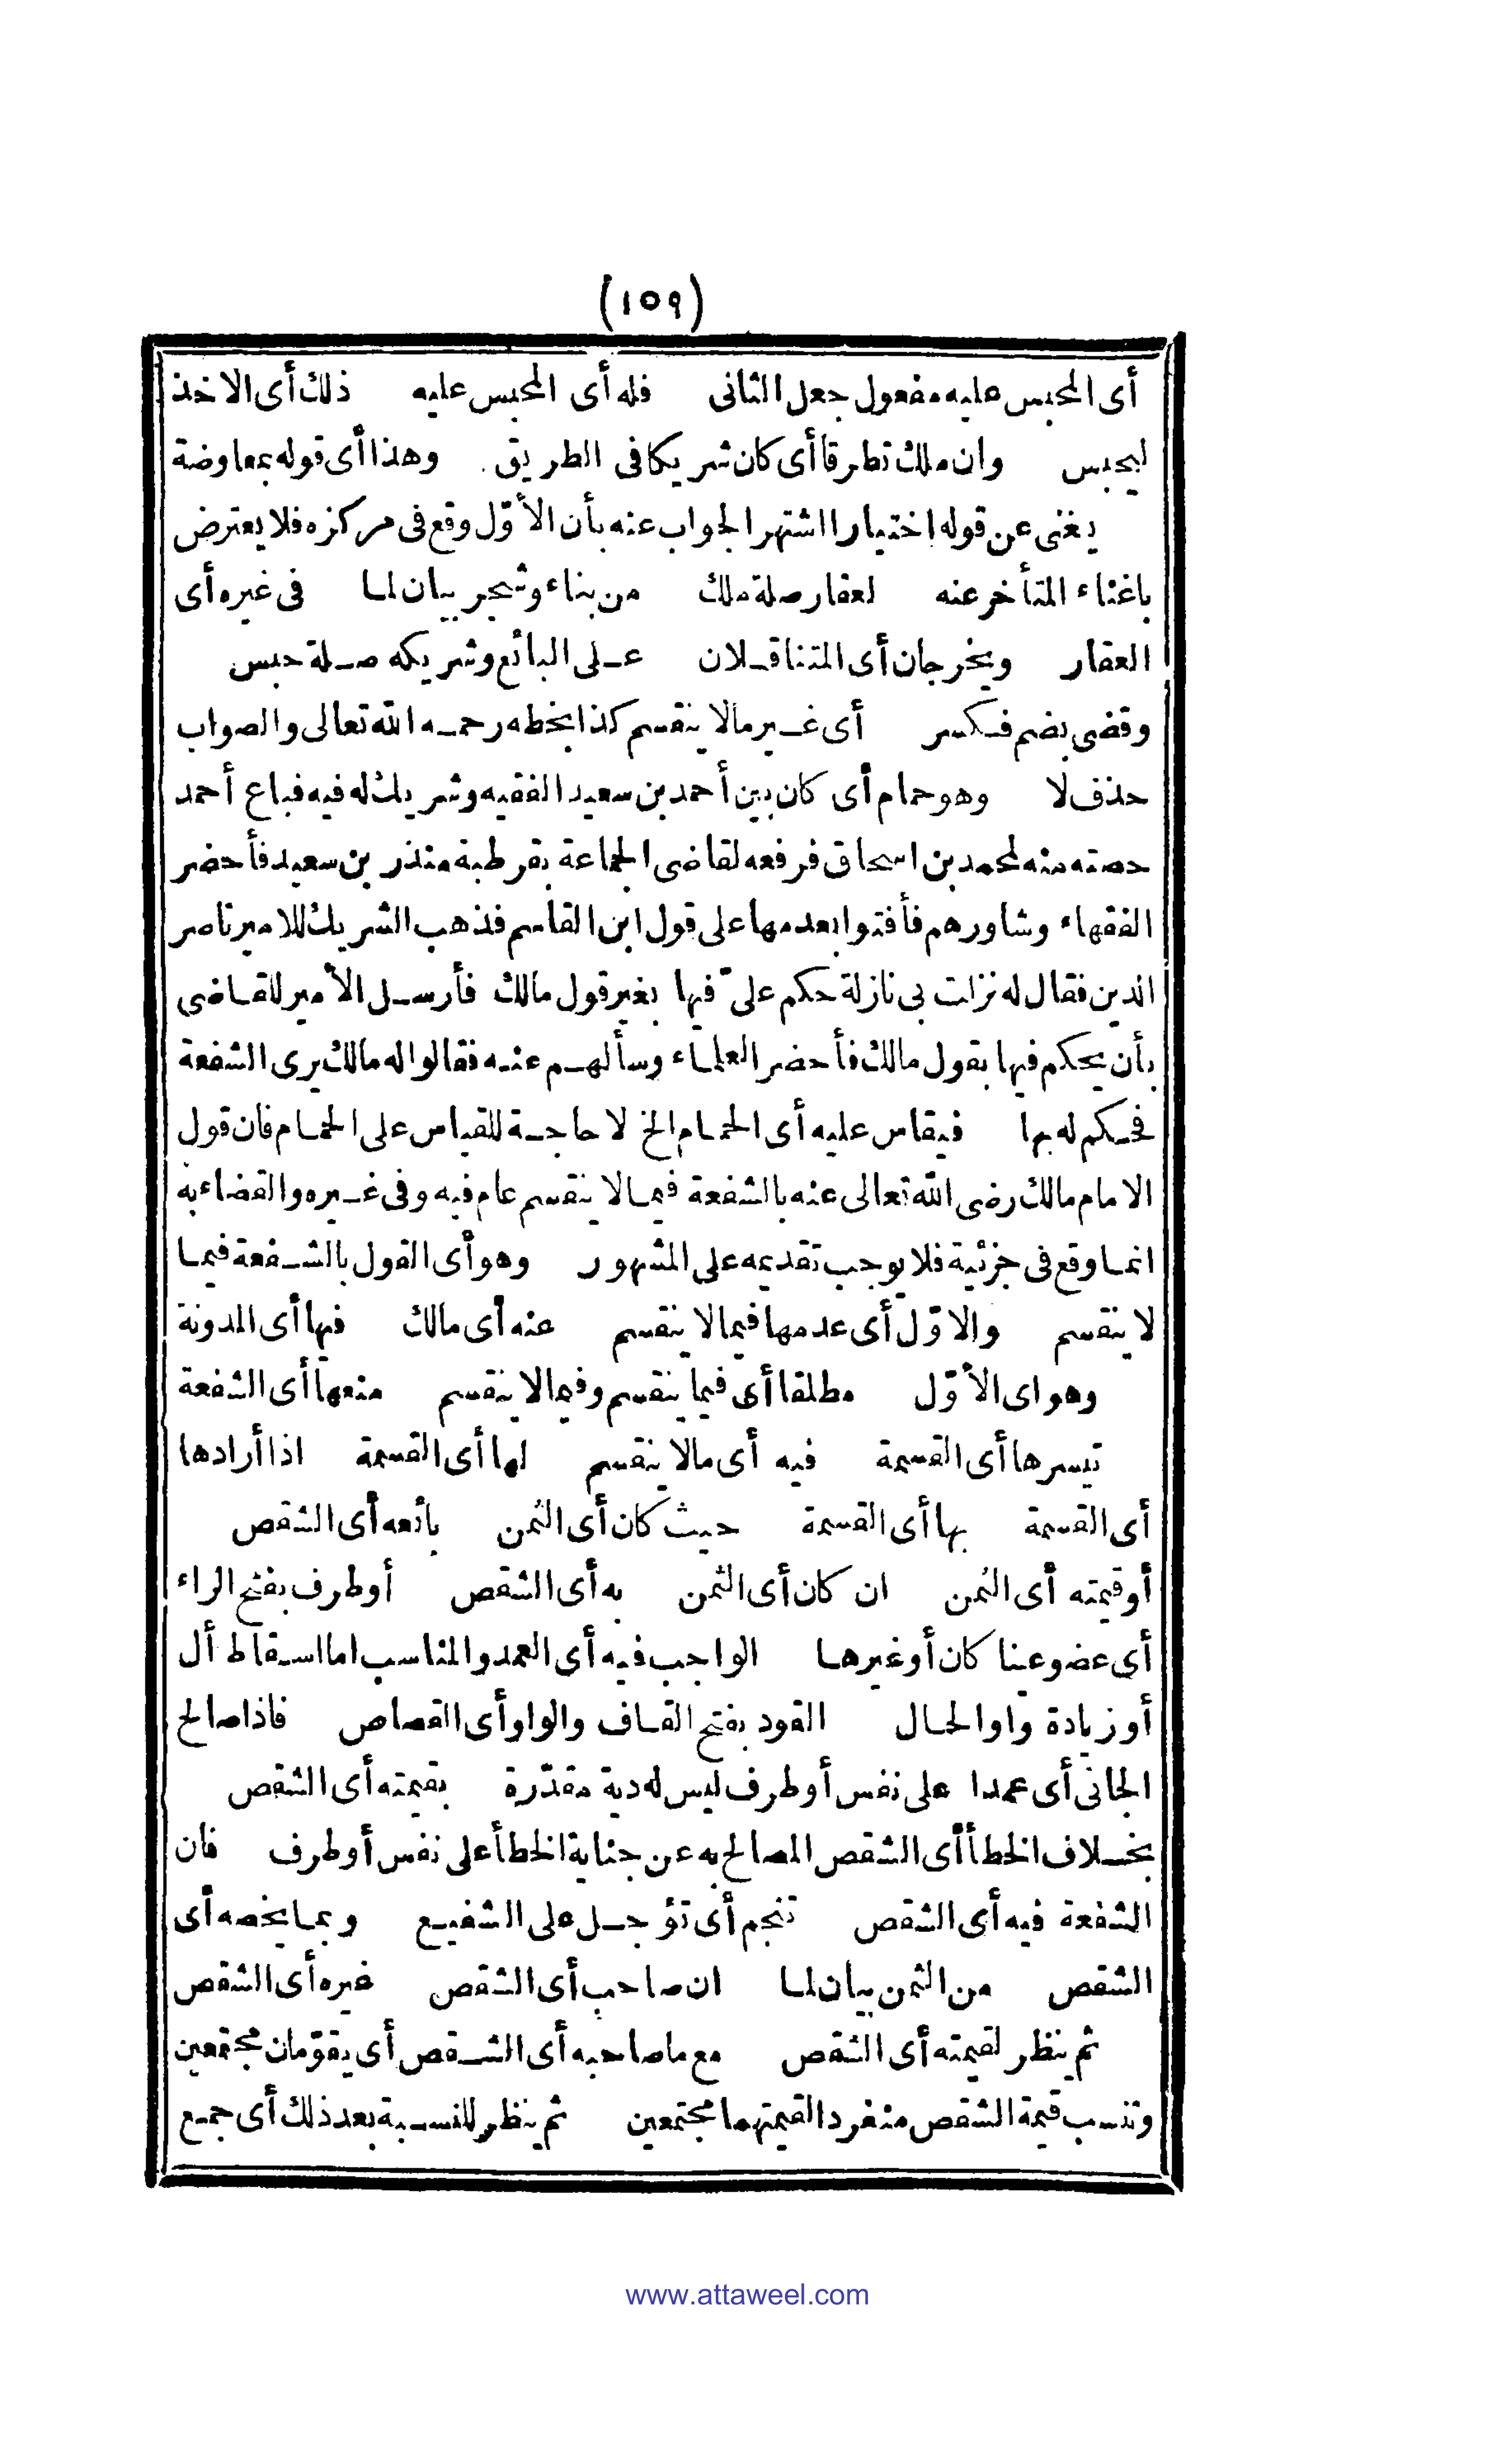 (١٥٩)
أى المحبس عليه مفعول جعل الثانى فله أى المحبس عليه ذلك أى الاخذ
ليحبس وان ملك تطرقا أى كان شريكا فى الطريق. وهذا أى قوله بمعاوضة
يغنى عن قوله اختيارا اشتهر الجواب عنه بأن الأوّل وقع فى مركزه فلا يعترض
باغناء المتأخر عنه لعقار صلة ملك من بناء وشجر بيان لما فى غيره أى
العقار ويخرجان أى المتناقلان على البائع وشريكه صلة حبس
وقضى بضم فكسر أى غير مالا ينقسم كذا بخطه رحمه الله تعالى والصواب
حذف لا وهو حمام أى كان بين أحمد بن سعيد الفقيه وشريك له فيه فباع أحمد
حصته منه لمحمد بن اسحاق فرفعه لقاضى الجماعة بقرطبة منذر بن سعيد فأحضر
الفقهاء وشاورهم فأفتوا بعدمها على قول ابن القاسم فذهب الشريك للامير ناصر
الدين فقال له نزلت بى نازلة حكم علىّ فيها بغير قول مالك فأرسل الأمير للقاضى
بأن يحكم فيها بقول مالك فأحضر العلماء وسألهم عنه فقالوا له مالك يرى الشفعة
فحكم له بها فيقاس عليه أى الحمام الخ لا حاجة للقياس على الحمام فان قول
الامام مالك رضى الله تعالى عنه بالشفعة فيما لا ينقسم عام فيه وفى غيره والقضاء به
انما وقع فى جزئية فلا يوجب تقديمه على المشهور وهو أى القول بالشفعة فيما
لا ينقسم والاوّل أى عدمها فيما لا ينقسم عنه أى مالك فيها أى المدونة
وهو اى الأوّل مطلقا أى فيما ينقسم وفيما لا ينقسم منعها أى الشفعة
تيسرها أى القسمة فيه أى مالا ينقسم لها أى القسمة اذا أرادها
أى القسمة بها أى القسمة حيث كان أى الثمن بائعه أى الشقص
أو قيمته أى الثمن ان كان أى الثمن به أى الشقص أو طرف بفتح الراء
أى عضو عينا كان أو غيرها الواجب فيه أى العمد والمناسب اما اسقاط أل
أو زيادة واو الحال القود بفتح القاف والواو أى القصاص فاذا صالح
الجانى أى عمدا على نفس أو طرف ليس له دية مقدّرة بقيمته أى الشقص
بخلاف الخطأ أى الشقص المصالح به عن جناية الخطأ على نفس أو طرف فان
الشفعة فيه أى الشقص تنجم أى تؤجل على الشفيع وبما يخصه أى
الشقص من الثمن بيان لما ان صاحب أى الشقص غيره أى الشقص
ثم ينظر لقيمته أى الشقص مع ما صاحبه أى الشقص أى يقوّمان مجتمعين
وتنسب قيمة الشقص منفردا لقيمتهما مجتمعين ثم ينظر للنسبة بعد ذلك أى جمع
www.attaweel.com